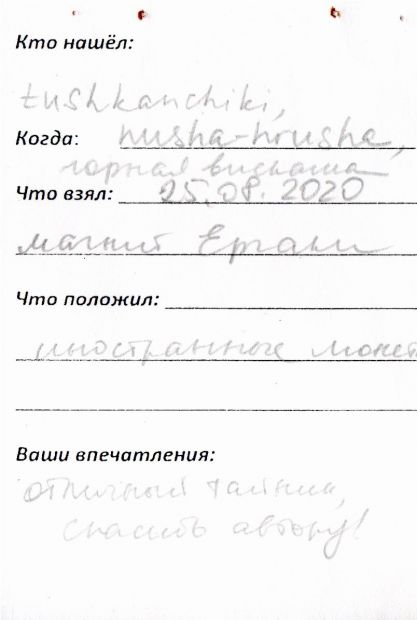 Кто нашёл:
tushkanchiki,
Когда: nusha-hrusha,
горная вискаша
Что взял: 25.08.2020
магнит Ергаки
Что положил:
иностранные монет
Ваши впечатления:
отличный тайник,
спасибо автору!